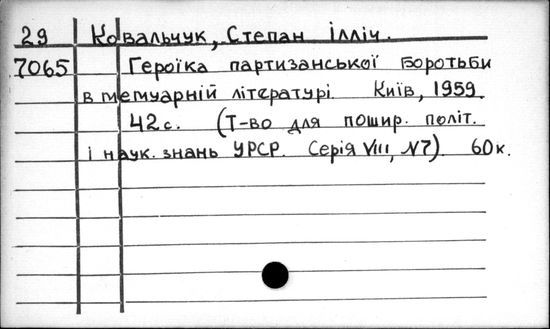 29 Ковальчук, Степан Ілліч.
7065 Героїка партизанської боротьби
в мемуарній літературі. Київ, 1959.
42 с. (Т-во для пошир. політ.
і наук. знань УРСР. Серія VIII, N7). 60 к.